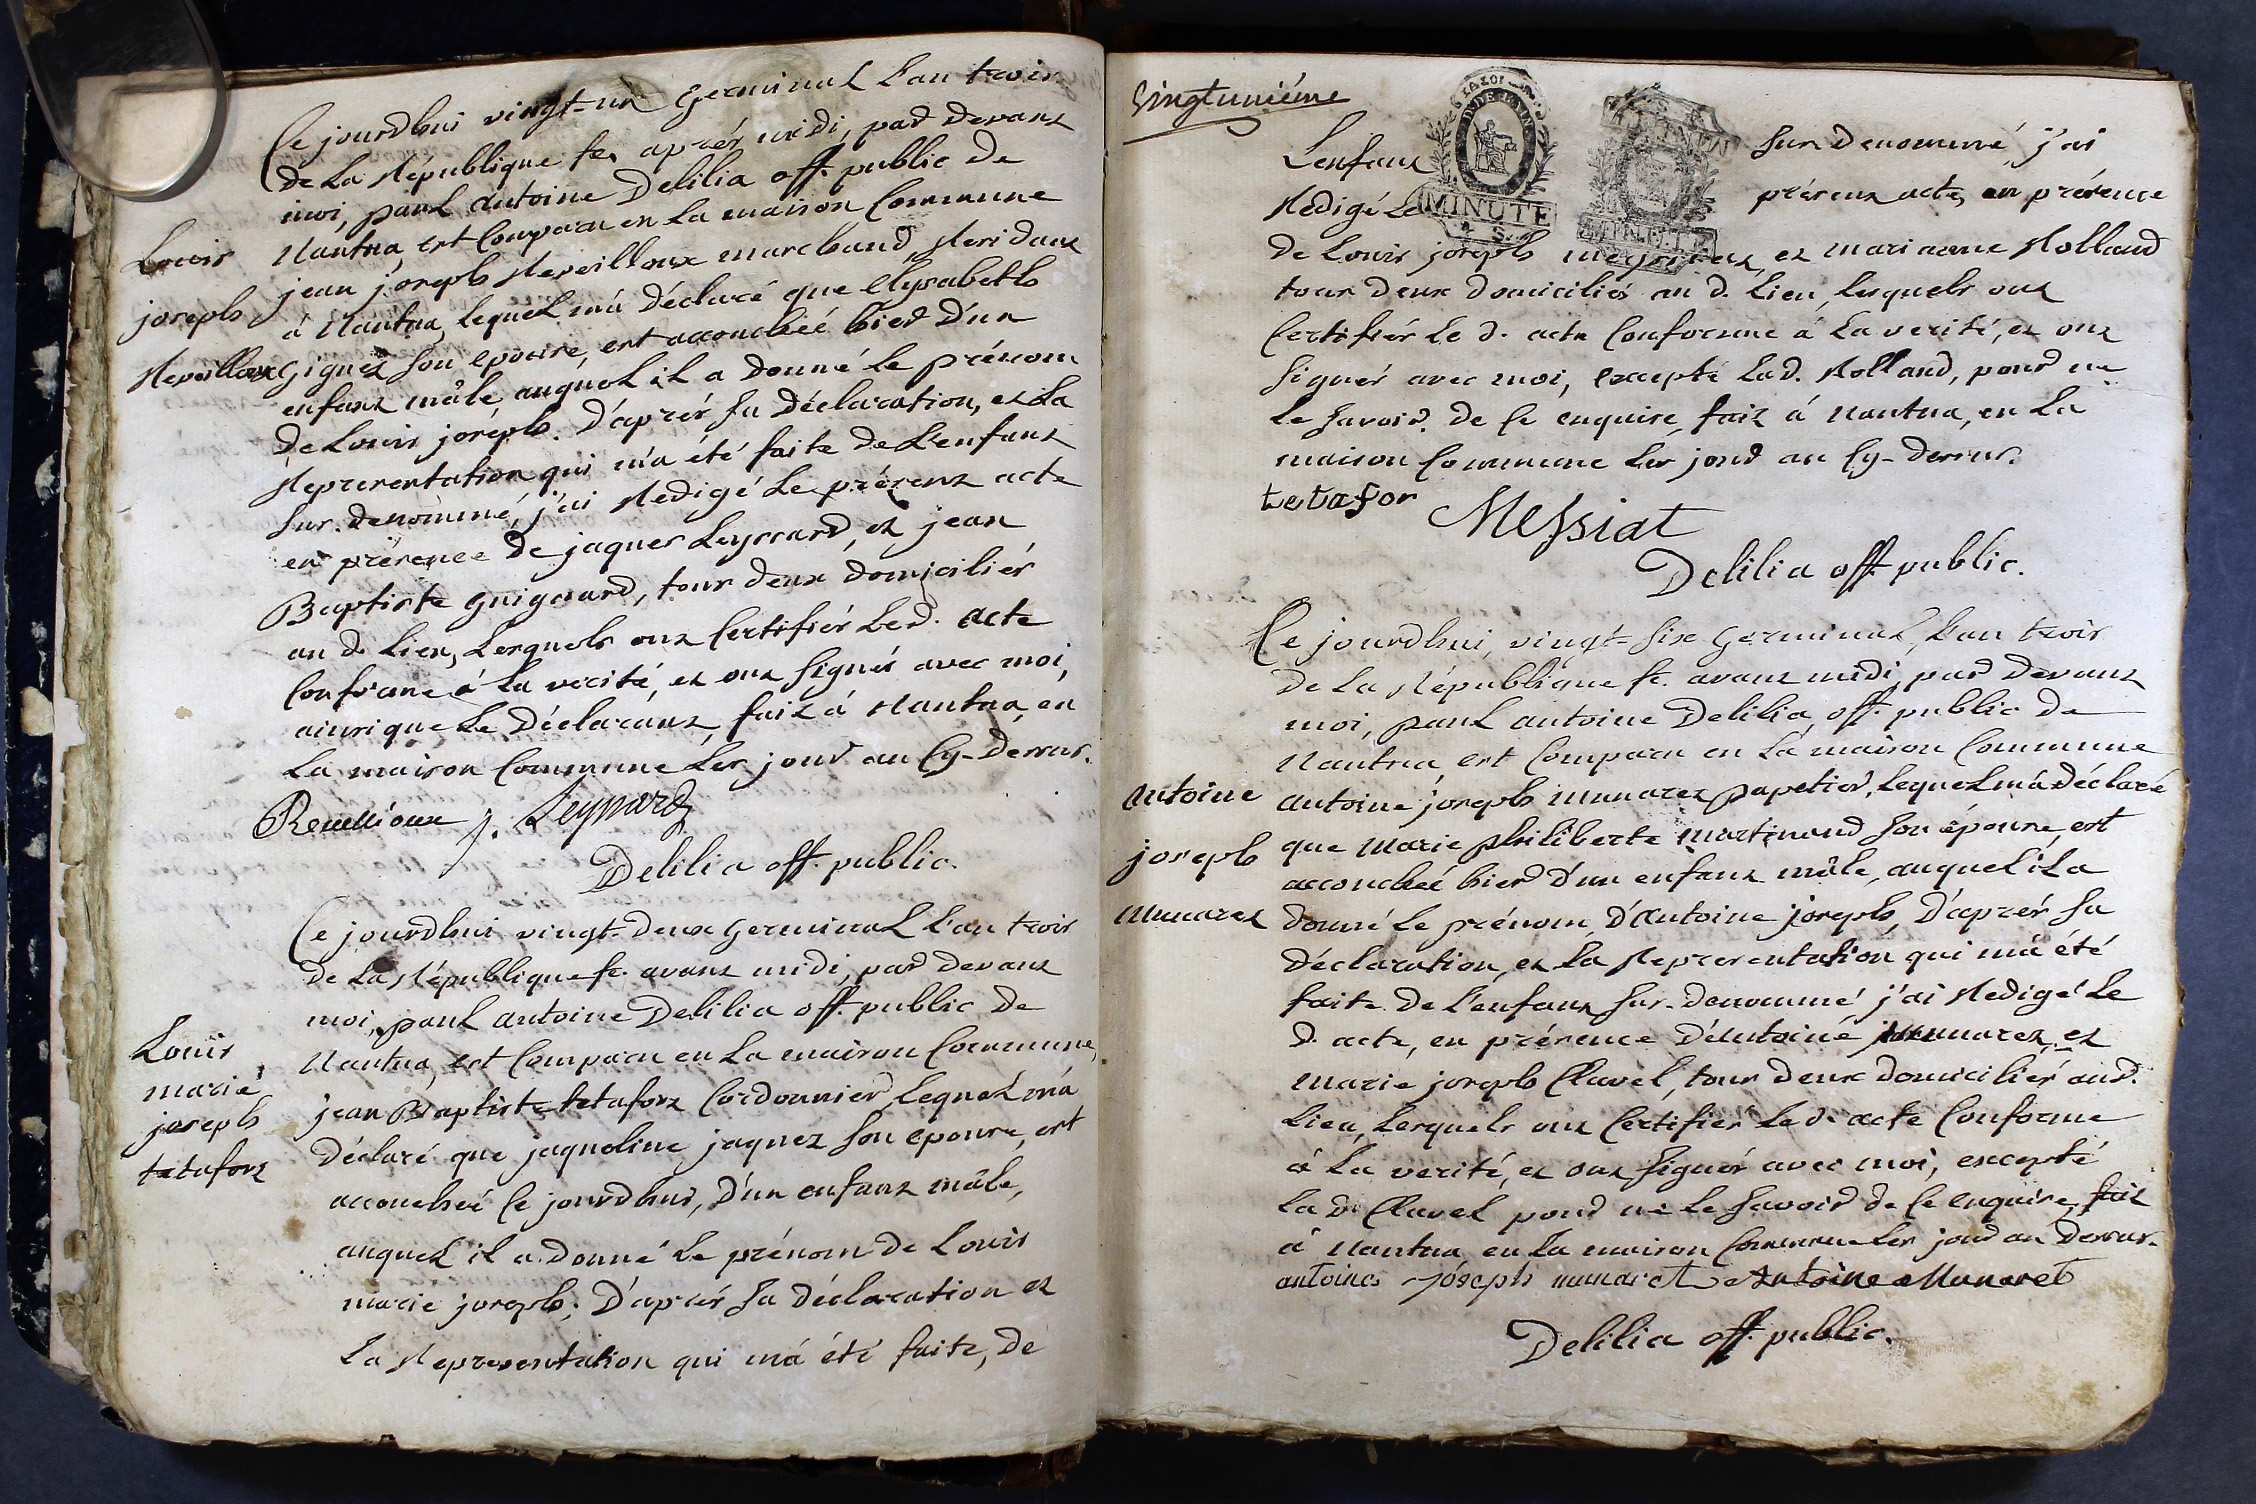 Ce jourdhui vingt-un Germinal L'an trois
de La République fe. après midi, par devant
moi, paul antoine Delilia off. public de
Nantua, est Comparu en La maison Commune
Louis
jean joseph Reveilloux marchand, Residant
joseph
à Nantua, lequel m'a déclaré que Elysabeth
Reveilloux
Giguet son epouse, est accouchéé hier d'un
enfant mâle auquel il a donné le prénom
de Louis joseph. D'après sa déclaration, et La
Representation qui m'a été faite de L'enfant
sus-dénommé, j'ai Redigé Le présent acte
en présence de jaques Leyssard, et jean
Baptiste Guigard, tous deux domiciliés
au d. Lieu, Lesquels ont Certifiés Le d. acte
Conforme à La verité, et ont signés avec moi,
ainsi que Le Déclarant, fait à Nantua, en
La maison Commune Les jour an Cy-Dessus.
Reveilloux j. Leyssard
Delilia off. public.
Ce jourdhui vingt-deux Germinal L'an trois
de La République fe. avant midi, par devant
moi, paul antoine Delilia off. public de
Louis
Nantua, est Comparu en La maison Commune,
marie
jean Baptiste tetafort Cordonnier, Lequel m'a
joseph
déclaré que jaqueline jaquet son epouse, est
tetafort
accouchéé Ce jourdhui, d'un enfant mâle,
auquel il a donné Le prénom de Louis
marie joseph; D'après sa déclaration et
La Representation qui m'a été faite, de
Vingtunième
L'enfant sus-denommé, j'ai
Redigé Le présent acte, en présence
MINUTE
de Louis joseph et marianne Rolland
tous deux domiciliés au d. Lieu, Lesquels ont
Certifiés Le d. acte Conforme à La verité, et ont
signés avec moi, excepté La d. Rolland, pour ne
Le savoir de Ce enquise, fait à Nantua, en La
maison Commune Les jour an Cy-dessus.
tetafor Messiat
Delilia off. public.
Ce jourdhui, vingt-six Germinal, L'an trois
de La République fe. avant midi, par devant
moi, paul antoine Delilia, off. public de
Nantua est Comparu en La maison Commune
Antoine
antoine joseph munaret papetier, Lequel m'a déclaré
joseph
que marie philiberte martinand son épouse, est
accouchéé hier d'un enfant mâle, auquel il a
Munaret
donné Le prénom, d'Antoine joseph, D'après sa
déclaration, et La Representation qui m'a été
faite de L'enfant sus-denommé j'ai Redigé Le
d. acte, en présence d'Antoine munaret, et
marie joseph Clavel, tous deux domiciliés aud.
Lieu, Lesquels ont Certifiés Le d. acte Conforme
à La verité, et ont signés avec moi, excepté
La d. Clavel pour ne Le savoir de Ce enquise, fait
à Nantua en La maison Commune Les jour an Dessus.
antoine joseph munaret Antoine Munaret
Delilia off. public.